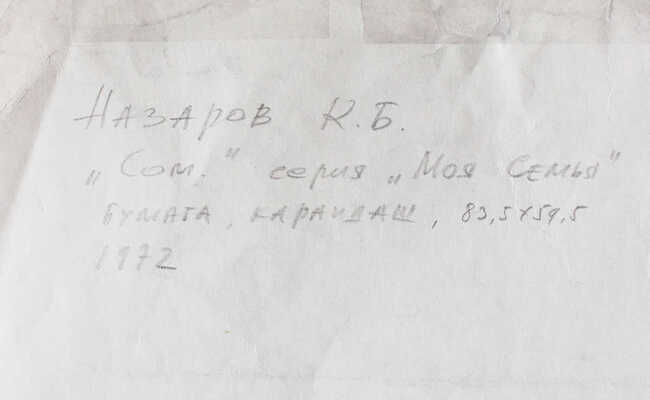 Назаров К.Б.
„Сом.” серия „Моя Семья”
бумага, карандаш, 83,5х59,5
1972